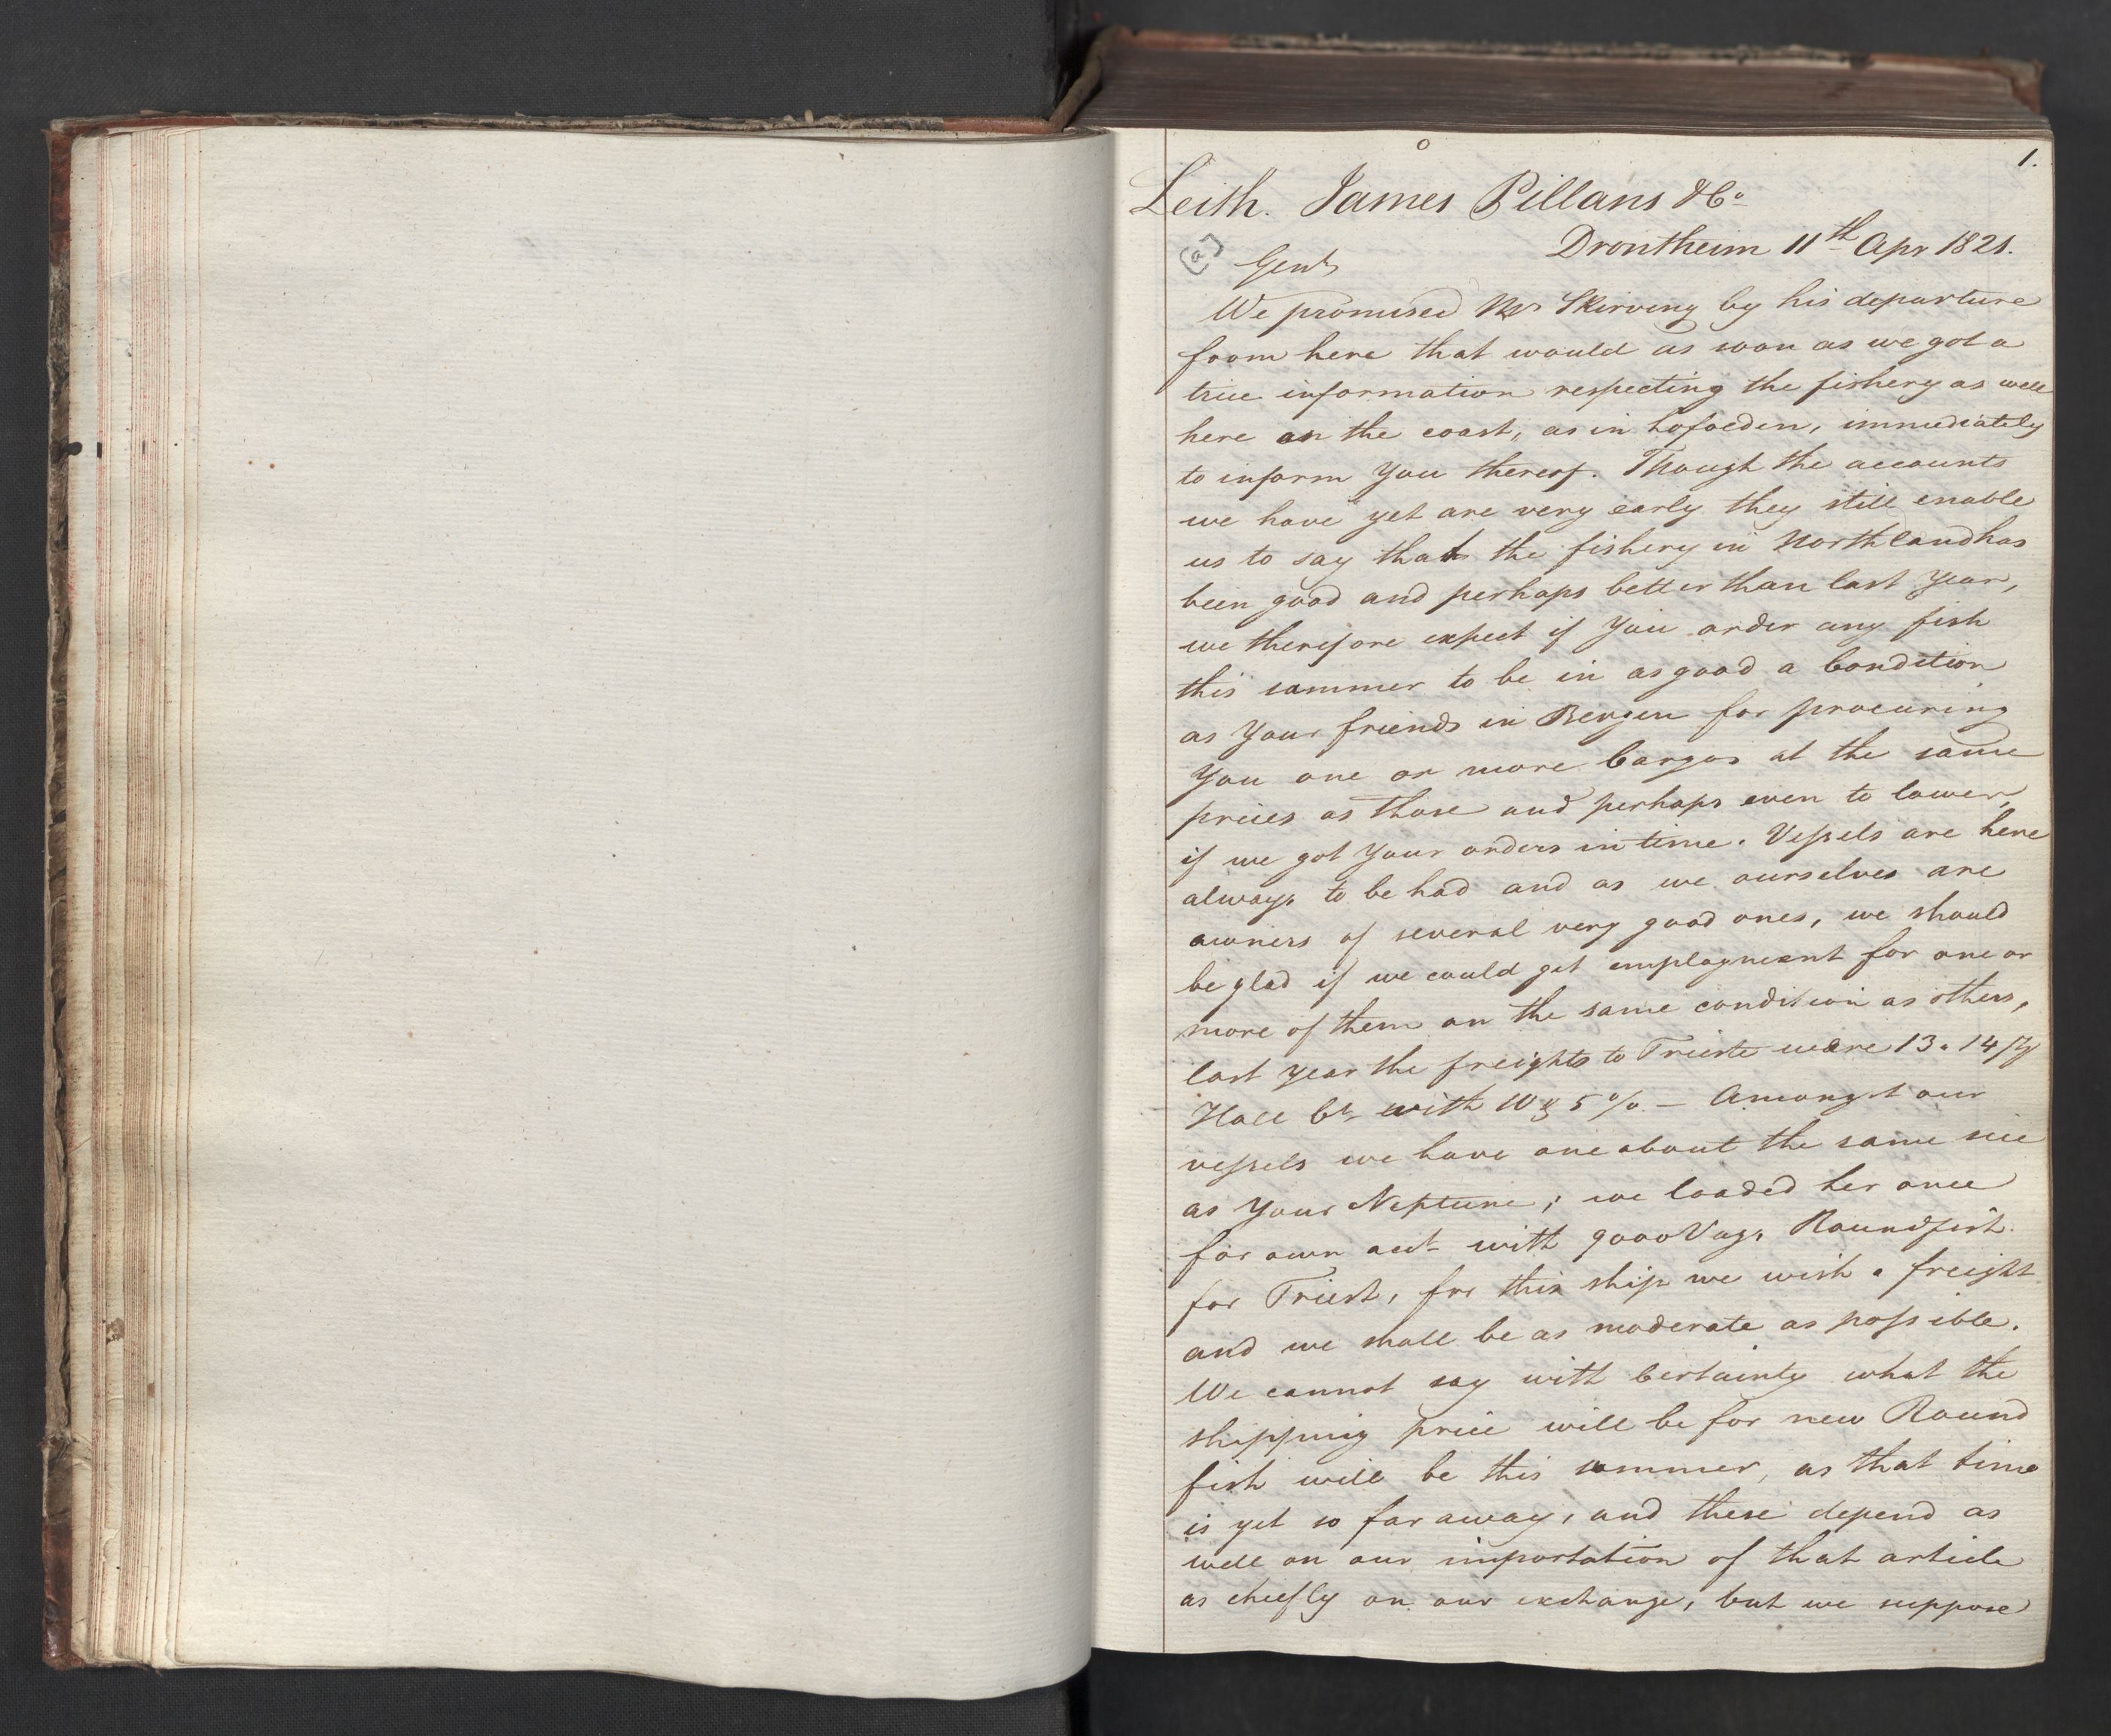 1.
Leith. James Pillans & Co
Drontheim 11th Apr 1821.
(a)
Gents
We promised Mr Skirving by his departure
from here that would as soon as we got a
true information respecting the fishery as well
here on the coast, as in Lofoeden, immediately
to inform You thereof. Though the accounts
we have yet are very early they still enable
us to say that the fishery in Northland has
been good and perhaps better than last Year,
we therefore expect if You order any fish
this sommer to be in as good a Condition
as Your friends in Bergen for procuring
You one or more Cargos at the same
prices as those and perhaps even to lower,
if we got Your orders in time. Vessels are here
always to be had and as we ourselves are
owners of several very good ones, we should
be glad if we could get employment for one or
more of them on the same condition as others,
last year the freights to Trieste were 13 a 14 /
Holl Ct with 10 & 5 %. — Amongst our
vessels we have one about the same sice
as Your Neptune; we loaded her once
for own act with 9000 Vogs Roundfish
for Triest, for this ship we wish a freight
and we shall be as moderate as possible.
We cannot say with Certainty what the
shipping price will be for new Round
fish will be this sommer, as that time
is yet so far away, and these depend as
well on our importation of that article
as cheefly on our exchange, but we suppose